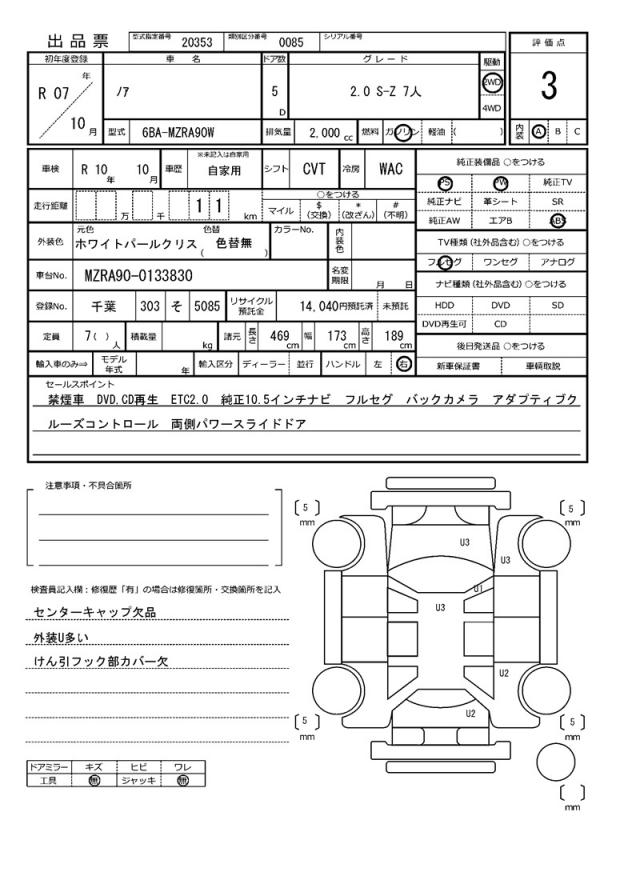 出品票 型式指定番号 20353 類別区分番号 0085 シリアル番号
評価点
3
初年度登録 車名 ドア数 グレード 駆動
R 07 年 10 月
ノア
5 D
2.0 S-Z 7人
2WD
4WD
型式 6BA-MZRA90W 排気量 2,000 cc 燃料 ガソリン 軽油 ( )
内装 A B C
車検 R 10 年 10 月 車歴 ※未記入は自家用 自家用 シフト CVT 冷房 WAC
純正装備品 ○をつける
PS PW 純正TV
純正ナビ 革シート SR
純正AW エアB ABS
走行距離 万 千 1 1 km
○をつける
マイル $(交換) *(改ざん) #(不明)
TV種類(社外品含む)○をつける
フルセグ ワンセグ アナログ
外装色 元色 ホワイトパールクリス 色替 ( 色替無 ) カラーNo. 内装色
車台No. MZRA90-0133830 名変期限 月 日
ナビ種類(社外品含む)○をつける
HDD DVD SD
DVD再生可 CD
登録No. 千葉 303 そ 5085 リサイクル預託金 14,040円預託済 未預託
定員 7( ) 人 積載量 kg 諸元 長さ 469 cm 幅 173 cm 高さ 189 cm
後日発送品 ○をつける
新車保証書 車輌取説
輸入車のみ⇒ モデル年式 年 輸入区分 ディーラー 並行 ハンドル 左 右
セールスポイント
禁煙車 DVD.CD再生 ETC2.0 純正10.5インチナビ フルセグ バックカメラ アダプティブク
ルーズコントロール 両側パワースライドドア
注意事項・不具合箇所
検査員記入欄：修復歴「有」の場合は修復箇所・交換箇所を記入
センターキャップ欠品
外装U多い
けん引フック部カバー欠
ドアミラー キズ ヒビ ワレ
工具 無 ジャッキ 無
[ 5 ] mm
[ 5 ] mm
U3
U3
U1
U3
U2
U2
[ 5 ] mm
[ 5 ] mm
[ ] mm